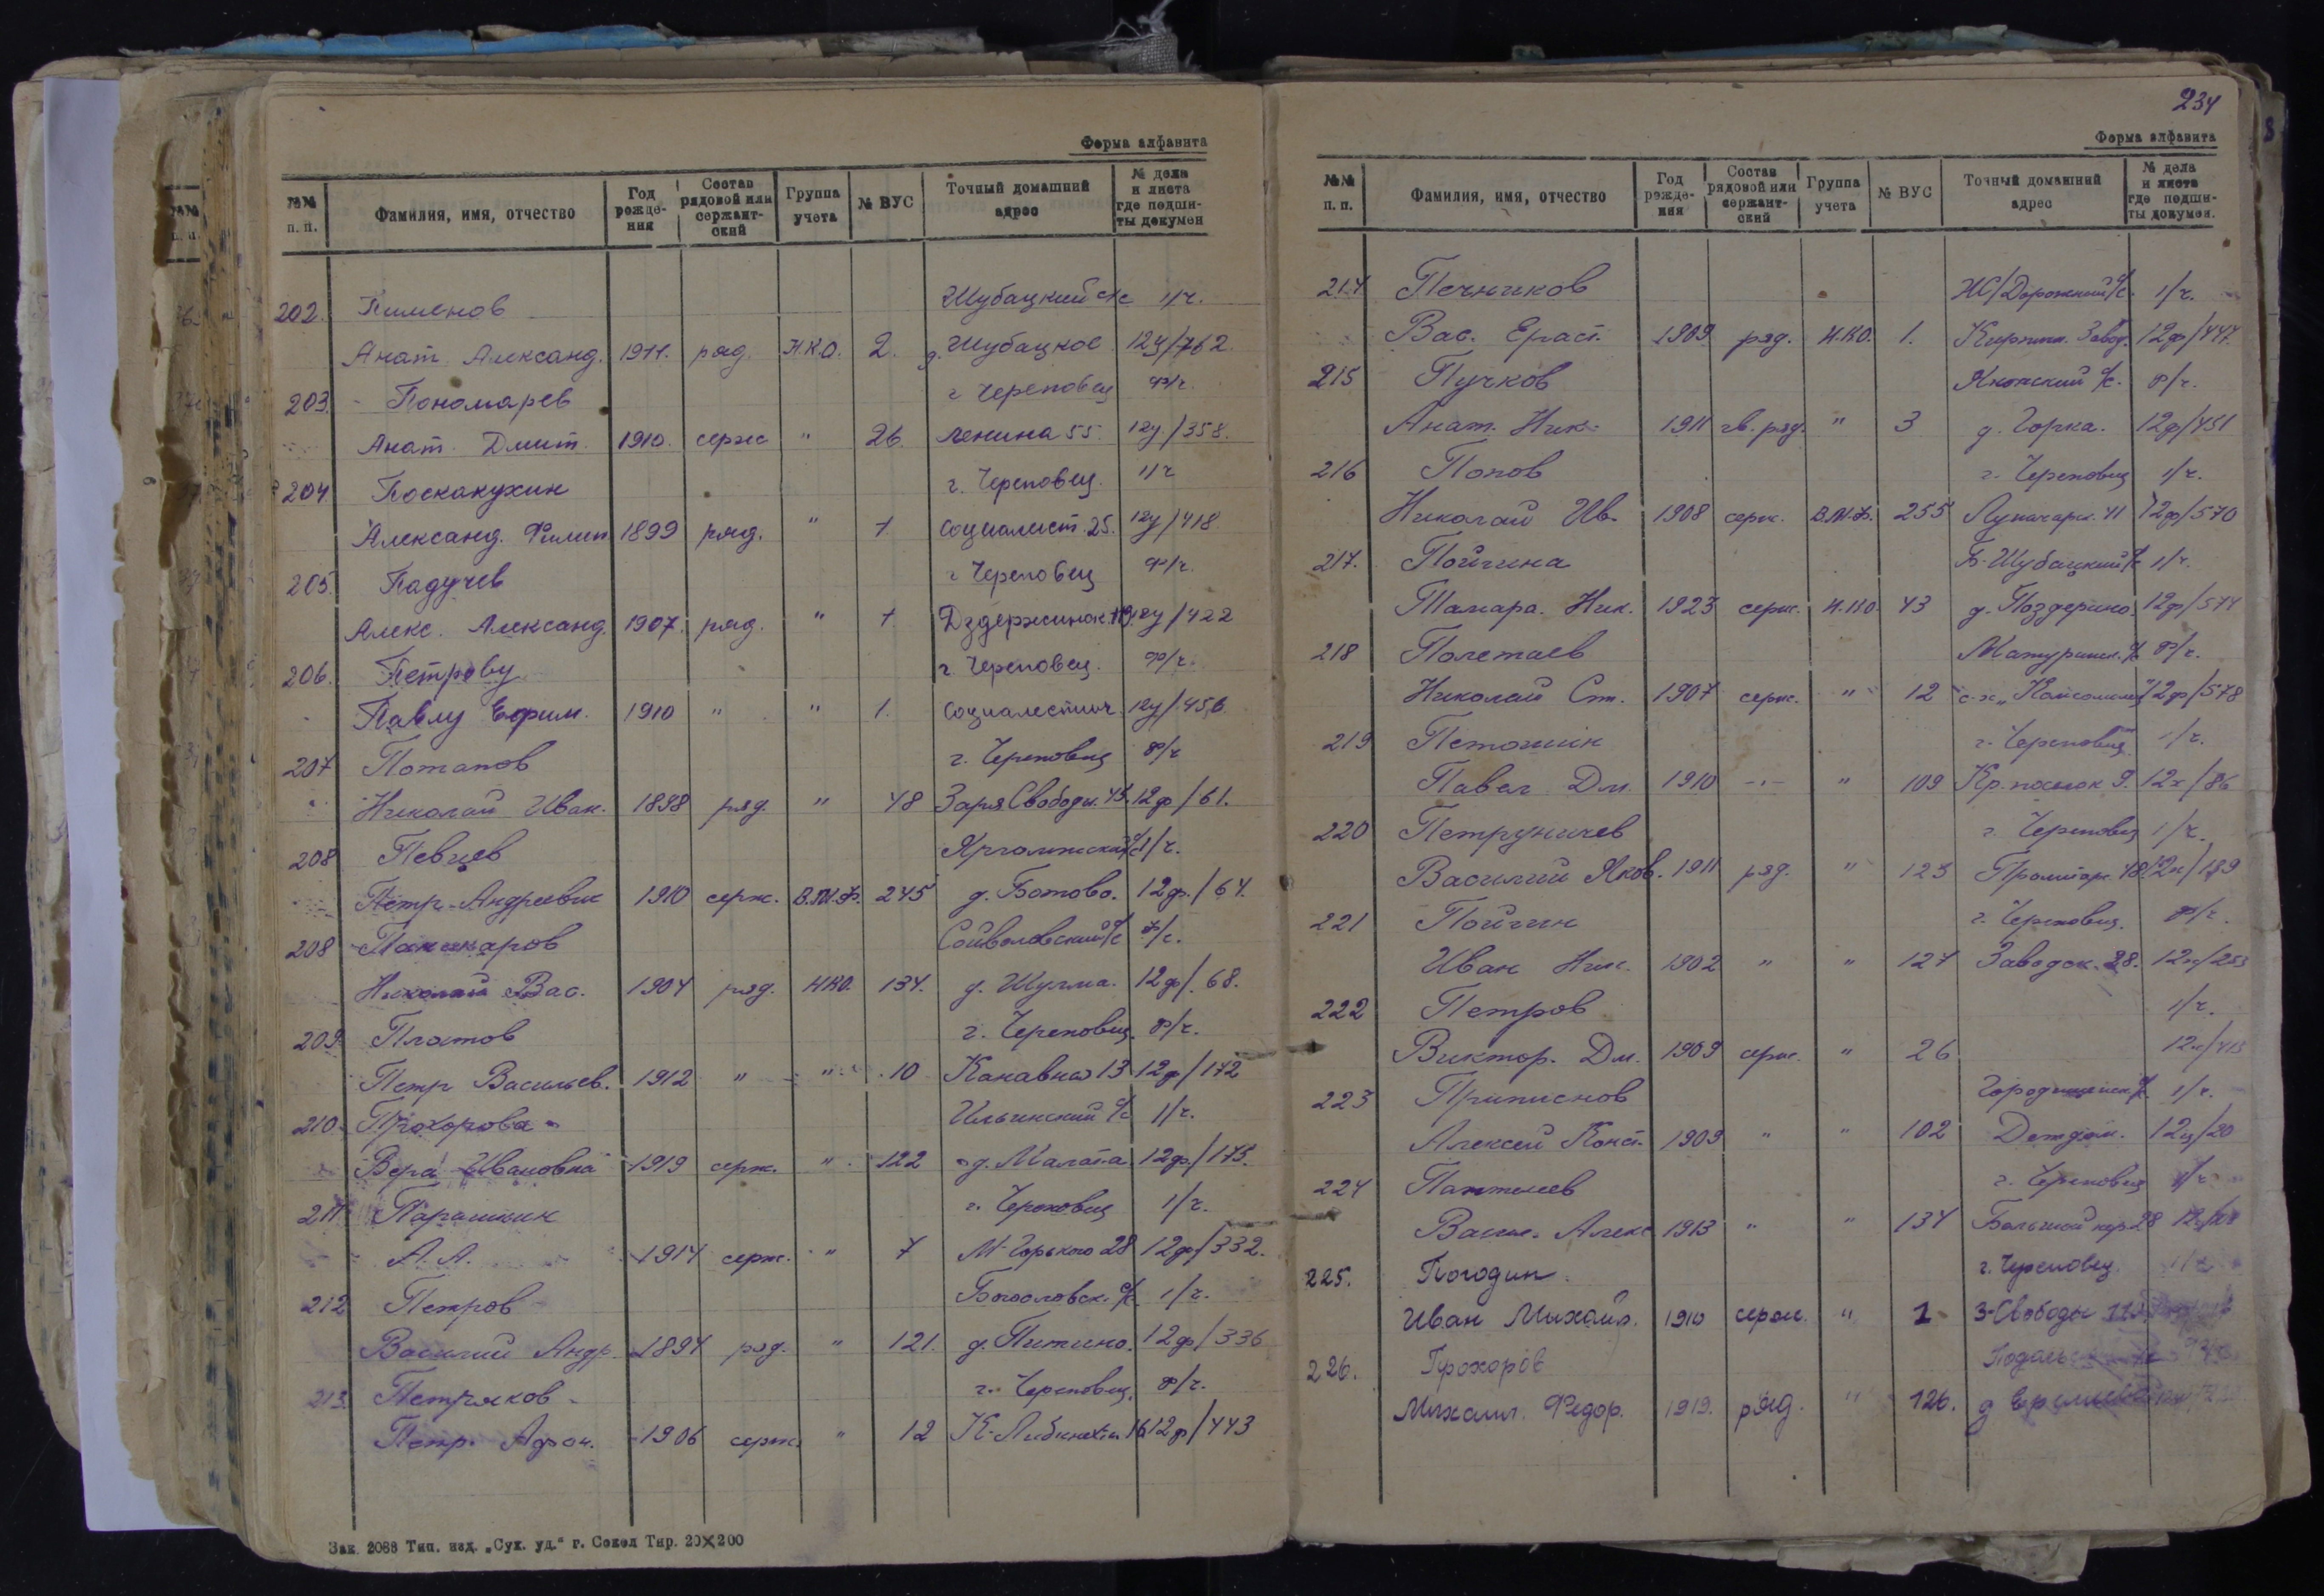 Форма алфавита
№№ п. п. Фамилия, имя, отчество Год рожде-ния Состав рядовой или сержант-ский Группа учета № ВУС Точный домашний адрес № дела и листа где подши-ты докумен
202. Пименов Шубацкий с/с 1/ч.
Анат. Александ. 1911. ряд. Н.К.О. 2. д. Шубацкое 12у/762
203. Пономарев г Череповец ф/ч.
Анат. Дмит. 1910. серж " 26. Ленина 55. 12у/358.
204 Поскакухин г. Череповец. 1/ч
Александ. Филип 1899 ряд. " 1 социалист. 25. 12у/418
205. Падучев г Череповец ф/ч.
Алекс. Александ. 1907. ряд. " 1 Дздержинск. 119. 12у/422
206. Петрову г. Череповец. ф/ч.
Павлу Ефим. 1910 " " 1. социалестич. 12у/456
207 Потапов г. Череповец ф/ч
Николай Иван. 1898 ряд. " 48 Заря Свободы. 45. 12ф/61.
208 Певцев Ярголжский с/с 1/ч.
Петр Андреевич 1910 серж. В.М.Ф. 245 д. Ботово. 12ф./64.
208 Паникаров Сойволовский с/с ф/с.
Николай Вас. 1904 ряд. НКО. 134. д. Шулма. 12ф/68.
209. Платов г. Череповец. ф/ч.
Петр Васильев. 1912 " " 10 Канавная 13 12ф/172
210. Прохорова Ильинский с/с 1/ч.
Вера Ивановна 1919 серж. " 122 д. Малата. 12ф./175.
211 Парашкин г. Череповец 1/ч.
А. А. 1914 серж. " 7 М-Горького 28 12ф/332.
212 Петров Богословск. с/с. 1/ч.
Василий Андр. 1894 ряд. " 121. д. Питино. 12ф/336
213. Петряков г. Череповец. ф/ч.
Петр. Афон. 1906 серж. " 12 К-Либкнехта 16 12ф/443
Зак. 2088 Тип. изд. „Сух. уд." г. Сокол Тир. 20×200
234
Форма алфавита
№№ п. п. Фамилия, имя, отчество Год рожде-ния Состав рядовой или сержант-ский Группа учета № ВУС Точный домашний адрес № дела и листа где подши-ты докумен.
214 Печников Ж/Дорожный с/с. 1/ч.
Вас. Ераст. 1909 ряд. Н.КО. 1. Кирпич. Завод. 12ф/447.
215 Пучков Якопский с/с. ф/ч.
Анат. Ник. 1911 гв. ряд. " 3 д. Горка. 12ф/451
216 Попов г. Череповец 1/ч.
Николай Ив. 1908 серж. В.М.Ф. 255 Луначарск. 41 12ф/570
217. Пойгина Б-Шубацкий с/с 1/ч.
Тамара. Ник. 1923 серж. Н.КО. 43 д. Поздерино. 12ф/574
218 Полетаев Матуринск. с/с ф/ч.
Николай Ст. 1907 серж. " 12 с-х „Комсомлец" 12ф/578
219 Петошин г. Череповец 1/ч.
Павел Дм. 1910 -"- " 109 Кр. поселок 9. 12х/86
220 Петруничев г. Череповец 1/ч.
Василий Яков. 1911 ряд. " 123 Пролетарс. 48
221 Пойгин г. Череповец. ф/ч.
Иван Ник. 1902 " " 127 Заводск. 28.
222 Петров 1/ч.
Виктор. Дм. 1909 серж. " 26
223 Приписнов Городищенск. с/с. 1/ч.
Алексей Конст. 1909 " " 102 Детдом. 12ц/20
224 Пантелеев г. Череповец
Васил. Алекс 1913 " " 134 Большой пер. 28
225. Погодин г. Череповец.
Иван Михаил. 1910 серж. " 1 З-Свободы
226. Прохоров
Михаил. Федор. 1919. ряд. " 126. д